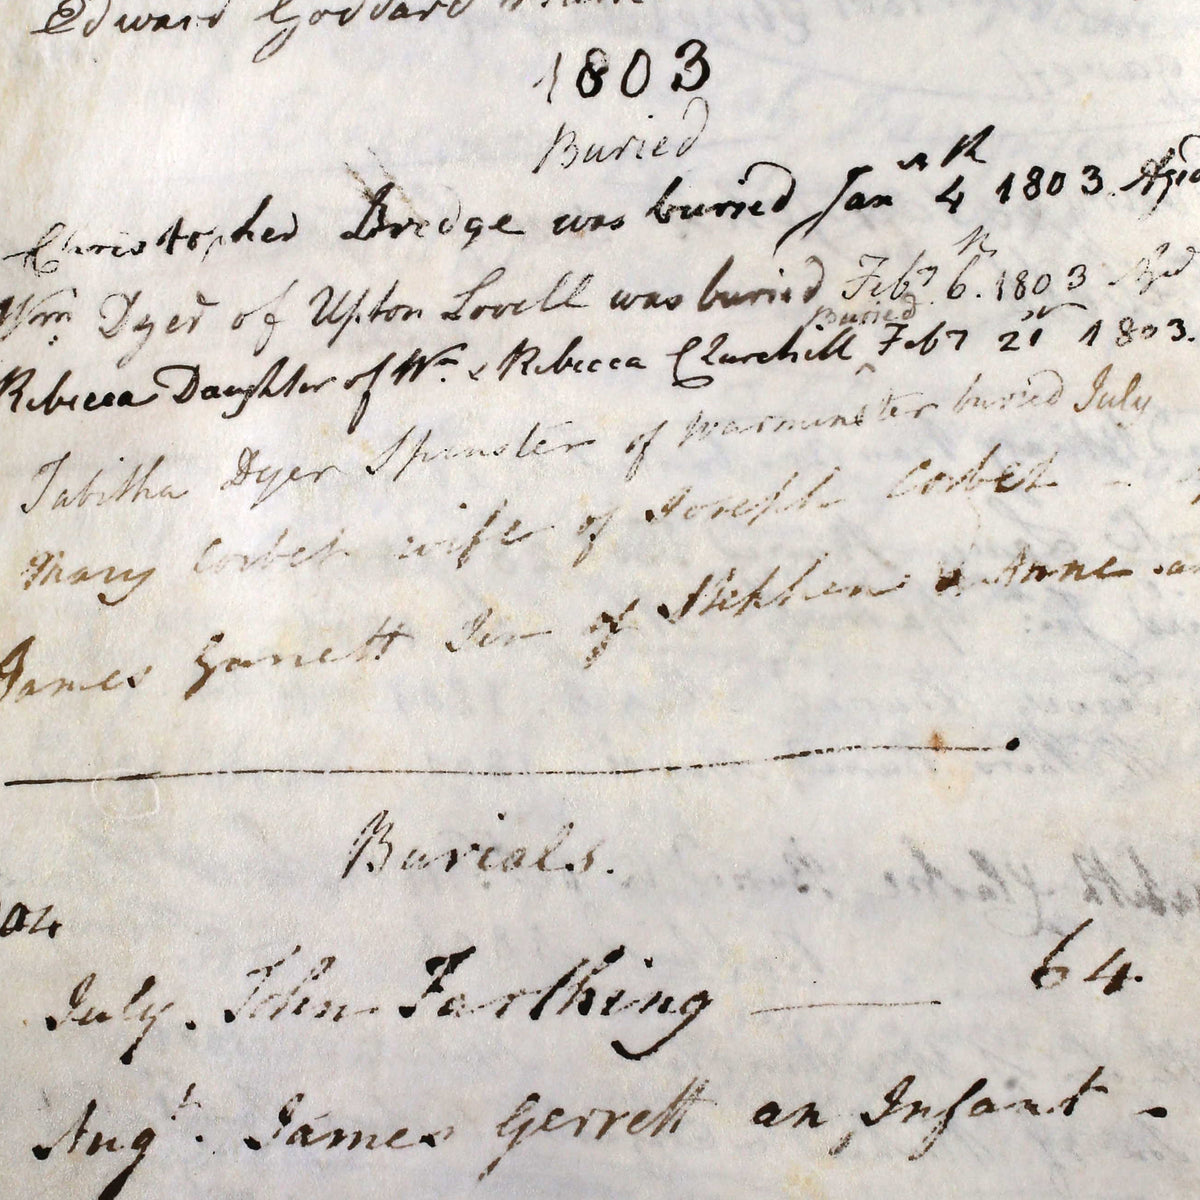 Edward Goddard
1803
Buried
Christopher Bredge was buried Janry 4th 1803. Aged
Wm Dyer of Upton Lovell was buried Feby 6th. 1803 Aged
Rebecca Daughter of Wm & Rebecca Churchill Buried Feby 21st 1803.
Tabitha Dyer Spinster of Warminster buried July
Mary Corbet wife of Joseph Corbet -
James Garrett Son of Stephen & Anne
Burials.
04
July. John Farthing — 64.
Augt. James Gerrett an Infant -